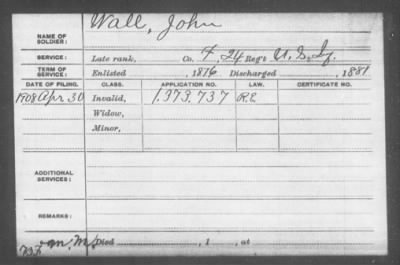 NAME OF SOLDIER: Wall, John
SERVICE: Late rank, Co. F, 24 Reg't U.S. Inf.
TERM OF SERVICE: Enlisted , 1876, Discharged , 1881
DATE OF FILING. CLASS. APPLICATION NO. LAW. CERTIFICATE NO.
1908 Apr. 30 Invalid, 1.373.737 R.E.
Widow,
Minor,
ADDITIONAL SERVICES:
REMARKS:
Died , 1 , at